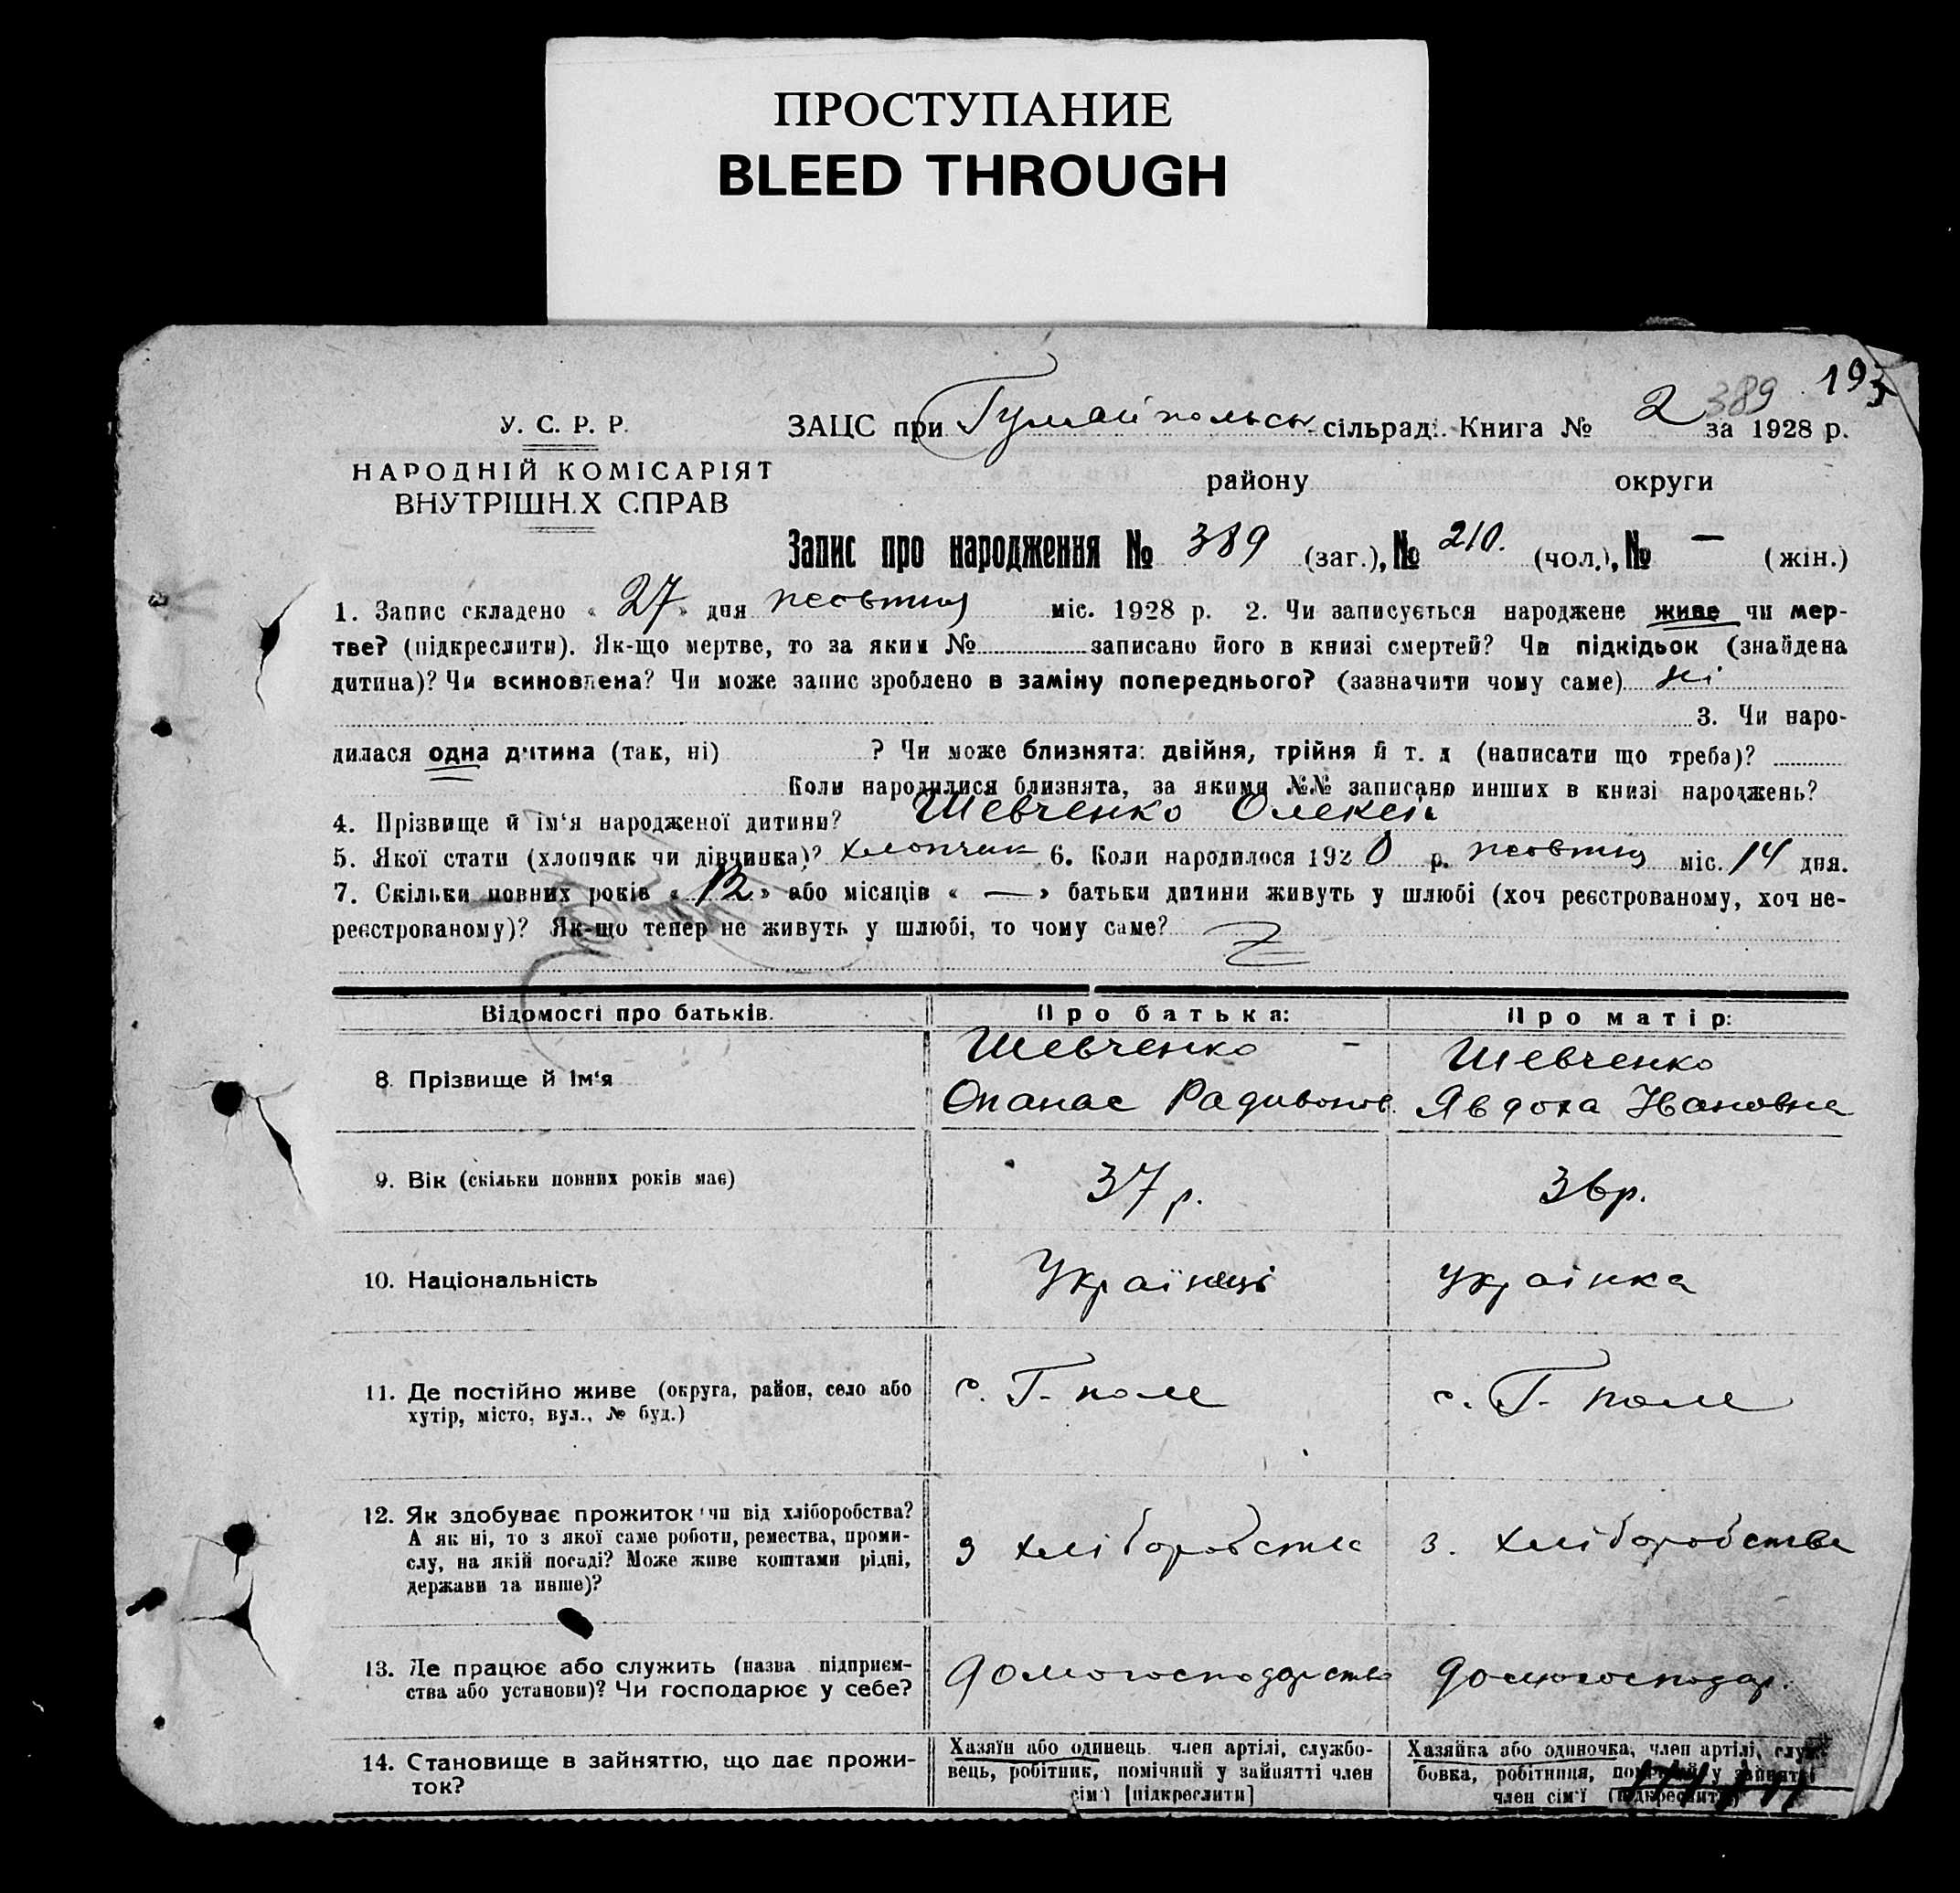 ПРОСТУПАНИЕ
BLEED THROUGH
193
389
У. С. Р. Р.
НАРОДНІЙ КОМІСАРІЯТ
ВНУТРІШН.Х СПРАВ
ЗАЦС при Гуляйпольськ сільраді. Книга № 2 за 1928 р.
району округи
Запис про народження № 389 (заг.), № 210. (чол.), № — (жін.)
1. Запис складено « 27 » дня жовтня міс. 1928 р. 2. Чи записується народжене живе чи мер-
тве? (підкреслити). Як-що мертве, то за яким № записано його в книзі смертей? Чи підкідьок (знайдена
дитина)? Чи всиновлена? Чи може запис зроблено в заміну попереднього? (зазначити чому саме) ні
3. Чи наро-
дилася одна дитина (так, ні) ? Чи може близнята: двійня, трійня й т. д (написати що треба)?
Коли народилися близнята, за якими №№ записано инших в книзі народжень?
4. Прізвище й ім‘я народженої дитини? Шевченко Олексій
5. Якої стати (хлопчик чи дівчинка)? хлопчик 6. Коли народилося 192 р. жовтня міс. 14 дня.
7. Скільки повних років « 12 » або місяців « — » батьки дитини живуть у шлюбі (хоч реєстрованому, хоч не-
реєстрованому)? Як-що тепер не живуть у шлюбі, то чому саме?
Відомості про батьків. Про батька: Про матір:
8. Прізвище й ім‘я Шевченко Опанас Радивонов. Шевченко Явдоха Івановна
9. Вік (скільки повних років має) 37 р. 36 р.
10. Національність Українці Українка
11. Де постійно живе (округа, район, село або с. Г- поле с. Г- поле
хутір, місто, вул., № буд.)
12. Як здобуває прожиток чи від хліборобства? з хліборобства з. хліборобства
А як ні, то з якої саме роботи, ремества, проми-
слу, на якій посаді? Може живе коштами рідні,
держави та инше)?
13. Де працює або служить (назва підприєм- домогосподарство домогосподар.
ства або установи)? Чи господарює у себе?
14. Становище в зайняттю, що дає прожи-
ток?
Хазяїн або одинець член артілі, службо-
вець, робітник, помічний у зайнятті член
сім‘ї [підкреслити]
Хазяйка або одиночка, член артілі, служ-
бовка, робітниця, у зайнятті
член сім‘ї (підкреслити)